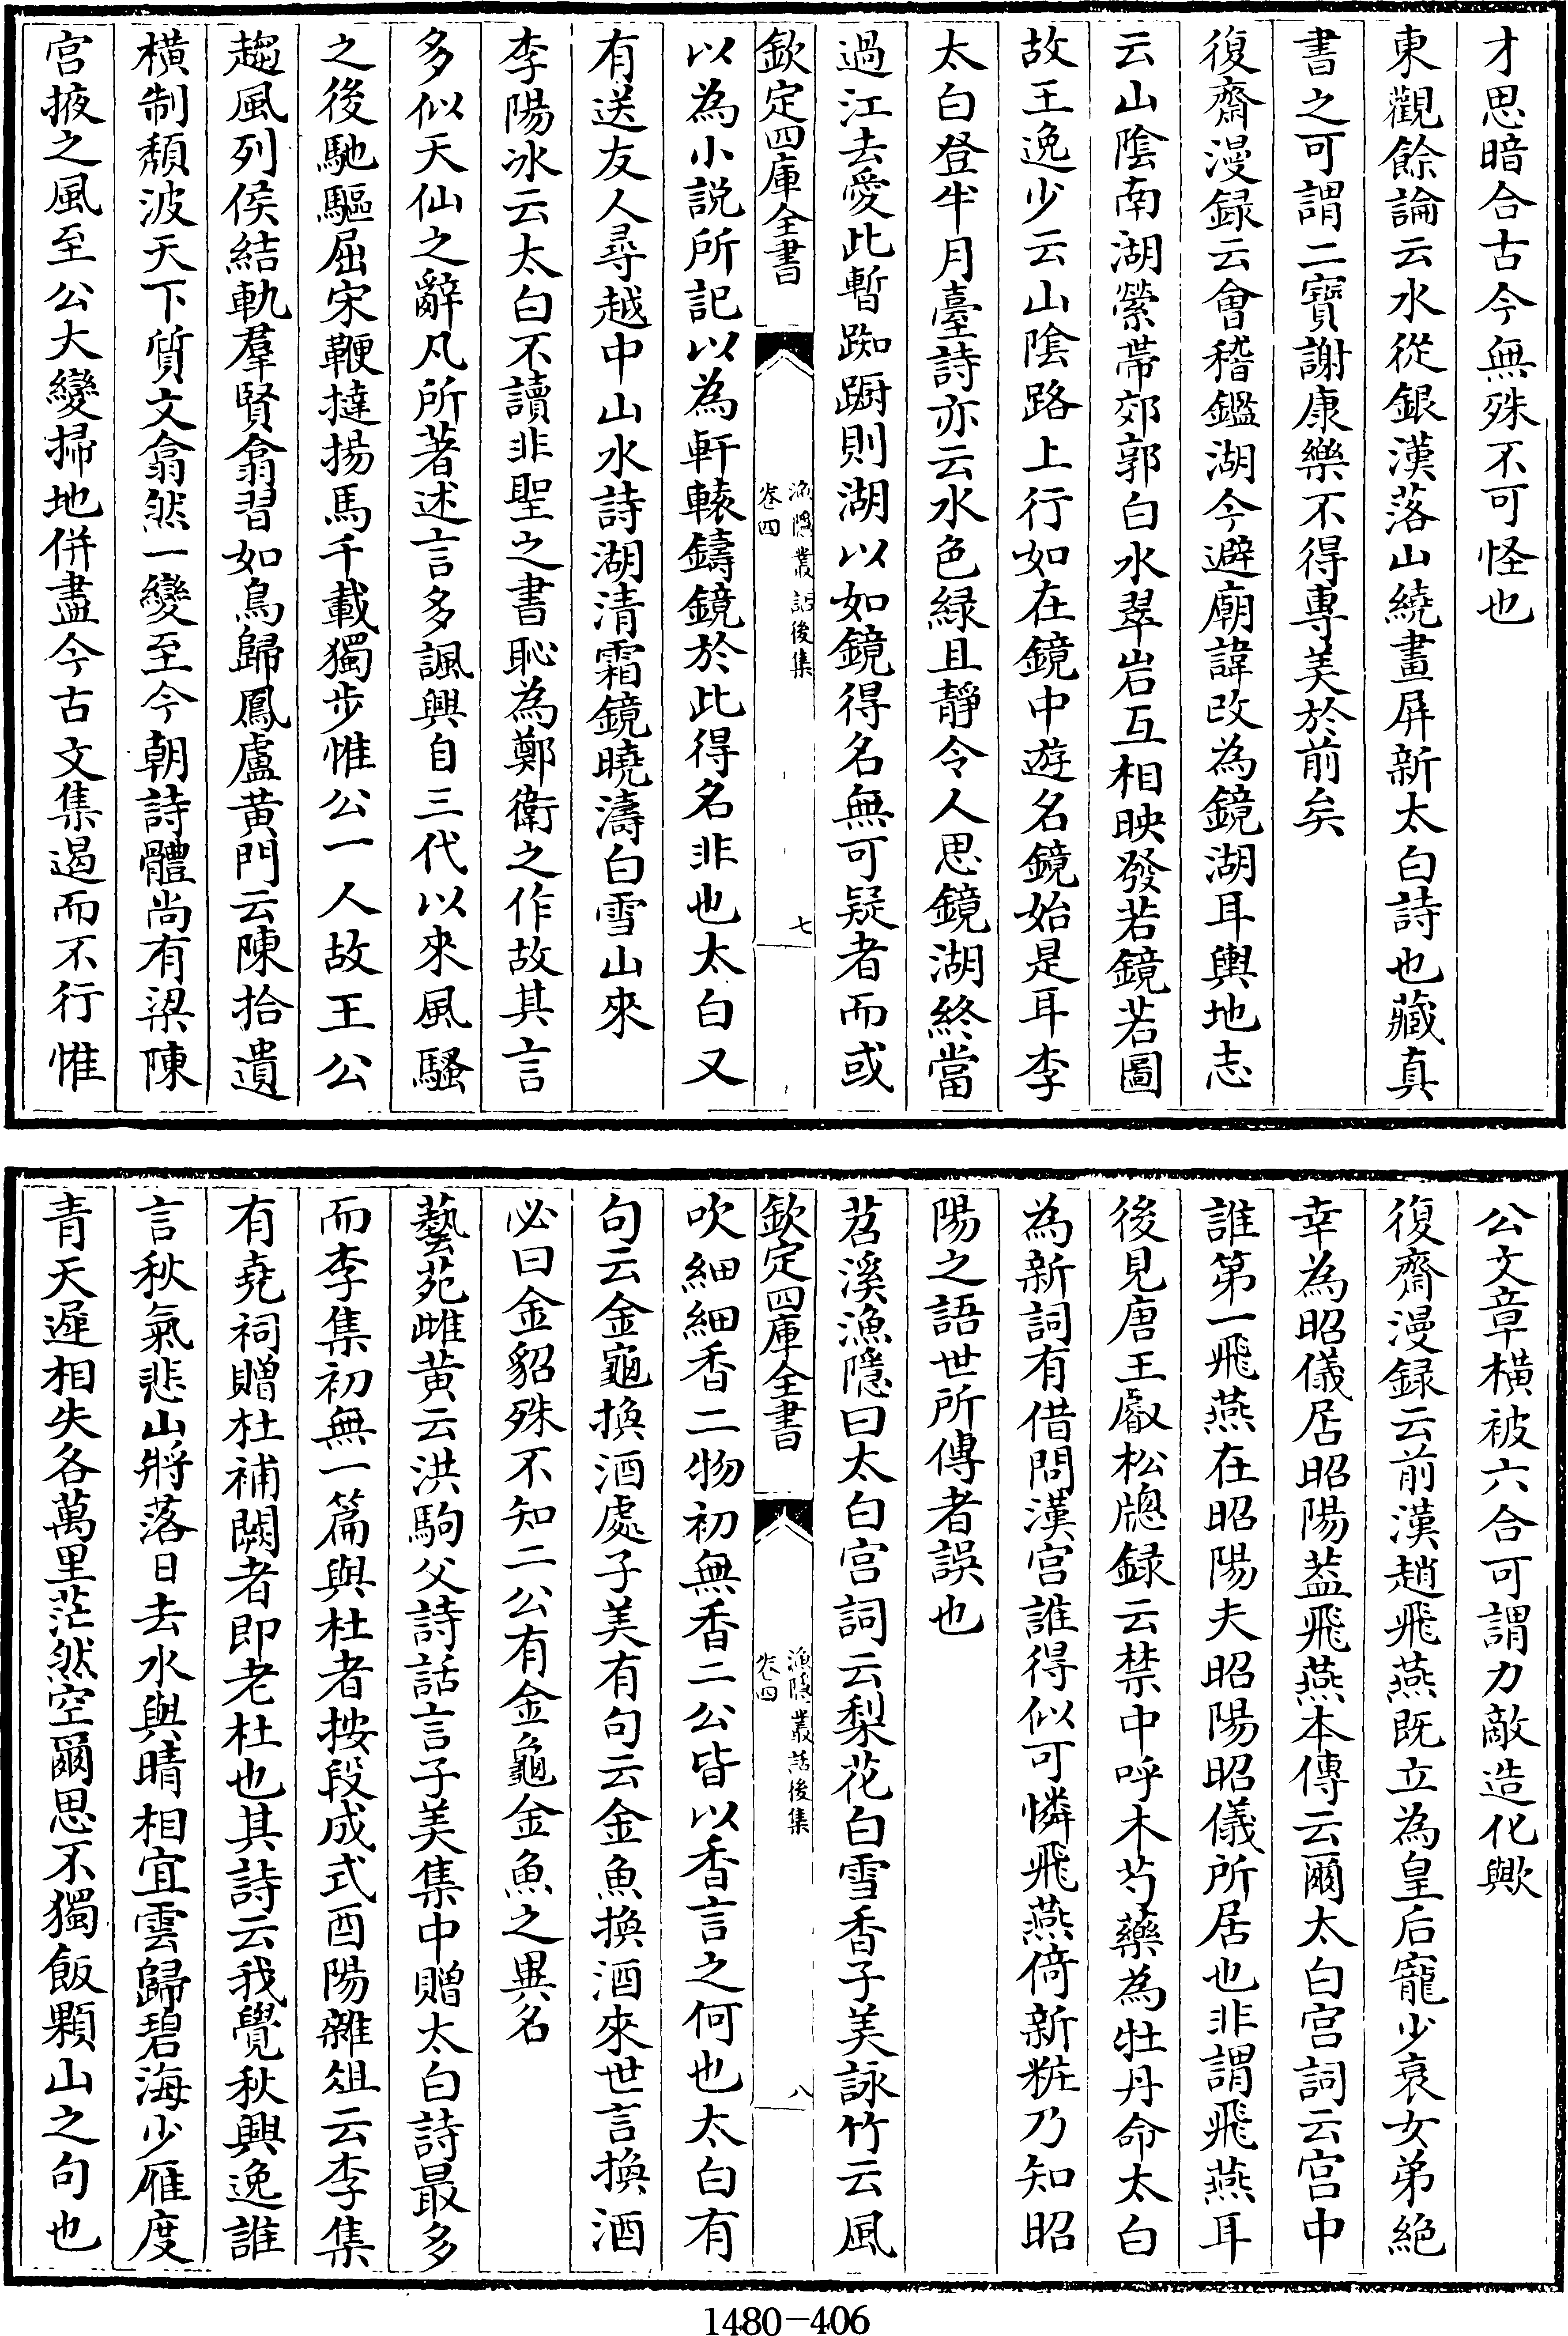 才思暗合古今無殊不可怪也
東觀餘論云水從銀漢落山繞畫屏新太白詩也藏真
書之可謂二寳謝康樂不得專美於前矣
復齋漫録云會稽鑑湖今避廟諱改為鏡湖耳輿地志
云山隂南湖縈帶郊郭白水翠岩互相映發若鏡若圖
故王逸少云山隂路上行如在鏡中遊名鏡始是耳李
太白登半月臺詩亦云水色緑且靜令人思鏡湖終當
過江去愛此暫踟蹰則湖以如鏡得名無可疑者而或
欽定四庫全書
漁隱叢話後集
卷四
七
以為小説所記以為軒轅鑄鏡於此得名非也太白又
有送友人尋越中山水詩湖清霜鏡曉濤白雪山來
李陽冰云太白不讀非聖之書恥為鄭衛之作故其言
多似天仙之辭凡所著述言多諷興自三代以來風騷
之後馳驅屈宋鞭撻揚馬千載獨步惟公一人故王公
趨風列侯結軌羣賢翕習如鳥歸鳳盧黄門云陳拾遺
橫制頽波天下質文翕然一變至今朝詩體尚有梁陳
宫掖之風至公大變掃地併盡今古文集遏而不行惟
公文章橫被六合可謂力敵造化歟
復齋漫録云前漢趙飛燕既立為皇后寵少衰女弟絶
幸為昭儀居昭陽葢飛燕本傳云爾太白宫詞云宫中
誰第一飛燕在昭陽夫昭陽昭儀所居也非謂飛燕耳
後見唐王叡松牕録云禁中呼木芍藥為牡丹命太白
為新詞有借問漢宫誰得似可憐飛燕倚新粧乃知昭
陽之語世所傳者誤也
苕溪漁隱曰太白宫詞云梨花白雪香子美詠竹云風
欽定四庫全書
漁隱叢話後集
卷四
八
吹細細香二物初無香二公皆以香言之何也太白有
句云金龜換酒處子美有句云金魚換酒來世言換酒
必曰金貂殊不知二公有金龜金魚之異名
藝苑雌黄云洪駒父詩話言子美集中贈太白詩最多
而李集初無一篇與杜者按段成式酉陽雜俎云李集
有堯祠贈杜補闕者即老杜也其詩云我覺秋興逸誰
言秋氣悲山將落日去水與晴相宜雲歸碧海少雁度
青天遲相失各萬里茫然空爾思不獨飯顆山之句也
1480-406